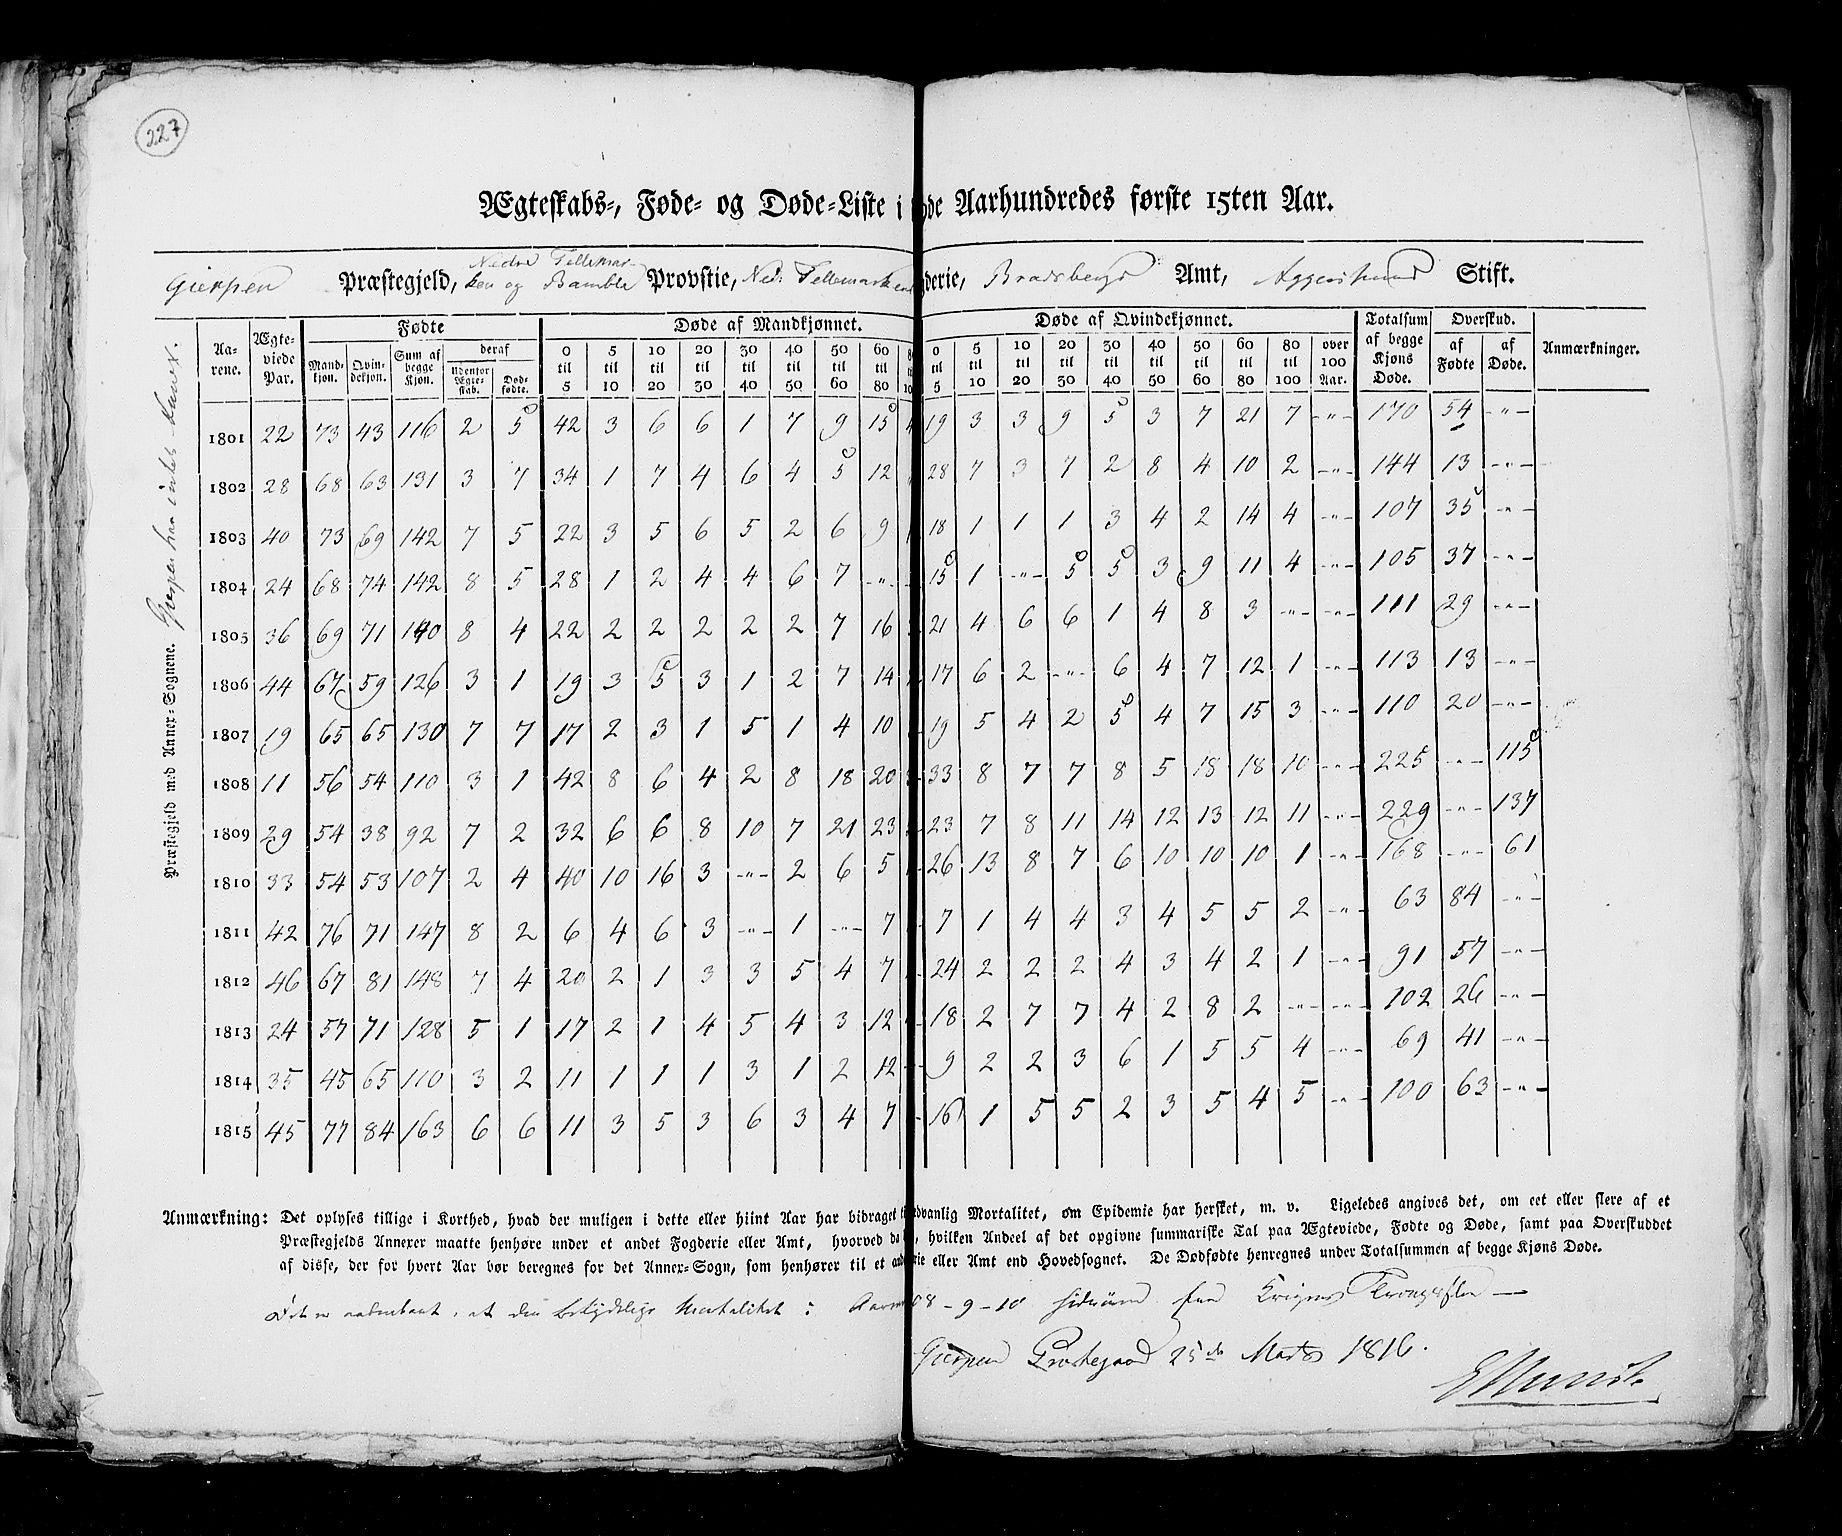 227
Ægteskabs-, Føde- og Døde-Liste i de Aarhundredes første 15ten Aar.
Gierpen Præstegjeld, Nedre Tellemarken og Bamble Provstie, Ned: Tellemarkens derie, Bradsbergs Amt, Aggershuus Stift.
Præstegjeld med Annex-Sognene. Gierpen har intet Annex.
Aarene. Ægteviede Par. Fødte Døde af Mandkjønnet. Døde af Qvindekjønnet. Totalsum af begge Kjøns Døde. Overskud. Anmærkninger.
Mandkjøn. Qvindekjøn. Sum af begge Kjøn. deraf Udenfor Ægteskab. Dødfødte. 0 til 5 5 til 10 10 til 20 20 til 30 30 til 40 40 til 50 50 til 60 60 til 80 0 til 5 5 til 10 10 til 20 20 til 30 30 til 40 40 til 50 50 til 60 60 til 80 80 til 100 over 100 Aar. af Fødte af Døde.
1801 22 73 43 116 2 5 42 3 6 6 1 7 9 15 4 19 3 3 9 5 3 7 21 7 -"- 170 54 -"-
1802 28 68 63 131 3 7 34 1 7 4 6 4 5 12 28 7 3 7 2 8 4 10 2 -"- 144 13 -"-
1803 40 73 69 142 7 5 22 3 5 6 5 2 6 9 18 1 1 1 3 4 2 14 4 -"- 107 35 -"-
1804 24 68 74 142 8 5 28 1 2 4 4 6 7 -"- 15 1 -"- 5 5 3 9 11 4 -"- 105 37 -"-
1805 36 69 71 140 8 4 22 2 2 2 2 2 7 16 21 4 6 6 1 4 8 3 -"- -"- 111 29 -"-
1806 44 67 59 126 3 1 19 3 5 3 1 2 7 14 17 6 2 -"- 6 4 7 12 1 -"- 113 13 -"-
1807 19 65 65 130 7 7 17 2 3 1 5 1 4 10 19 5 4 2 5 4 7 15 3 -"- 110 20 -"-
1808 11 56 54 110 3 1 42 8 6 4 2 8 18 20 33 8 7 7 8 5 18 18 10 -"- 225 -"- 115
1809 29 54 38 92 7 2 32 6 6 8 10 7 21 23 23 7 8 11 14 12 13 12 11 -"- 229 -"- 137
1810 33 54 53 107 2 4 40 10 16 3 -"- 2 6 5 26 13 8 7 6 10 10 10 1 -"- 168 -"- 61
1811 42 76 71 147 8 2 6 4 6 3 -"- 1 -"- 7 7 1 4 4 3 4 5 5 2 -"- 63 84 -"-
1812 46 67 81 148 7 4 20 2 1 3 3 5 4 7 24 2 2 2 4 3 4 2 1 -"- 91 57 -"-
1813 24 57 71 128 5 1 17 2 1 4 5 4 3 12 18 2 7 7 4 2 8 2 -"- -"- 102 26 -"-
1814 35 45 65 110 3 2 11 1 1 1 3 1 2 12 9 2 2 3 6 1 5 5 4 -"- 69 41 -"-
1815 45 77 84 163 6 6 11 3 5 3 6 3 4 7 16 1 5 5 2 3 5 4 5 -"- 100 63 -"-
Anmærkning: Det oplyses tillige i Korthed, hvad der muligen i dette eller hiint Aar har bidraget dvanlig Mortalitet, om Epidemie har hersket, m. v. Ligeledes angives det, om eet eller flere af et
Præstegjelds Annexer maatte henhøre under et andet Fogderie eller Amt, hvorved da , hvilken Andeel af det opgivne summariske Tal paa Ægteviede, Fødte og Døde, samt paa Overskuddet
af disse, der for hvert Aar bør beregnes for det Annex-Sogn, som henhører til et and rie eller Amt end Hovedsognet. De Dødfødte henregnes under Totalsummen af begge Kjøns Døde.
Det er aabenbart, at den betydelige Mortalitet i Aarene 08-9-10 hidrører fra Krigens Trængsler —
Gierpen Præstegaard 25de Marts 1816.
E Munch